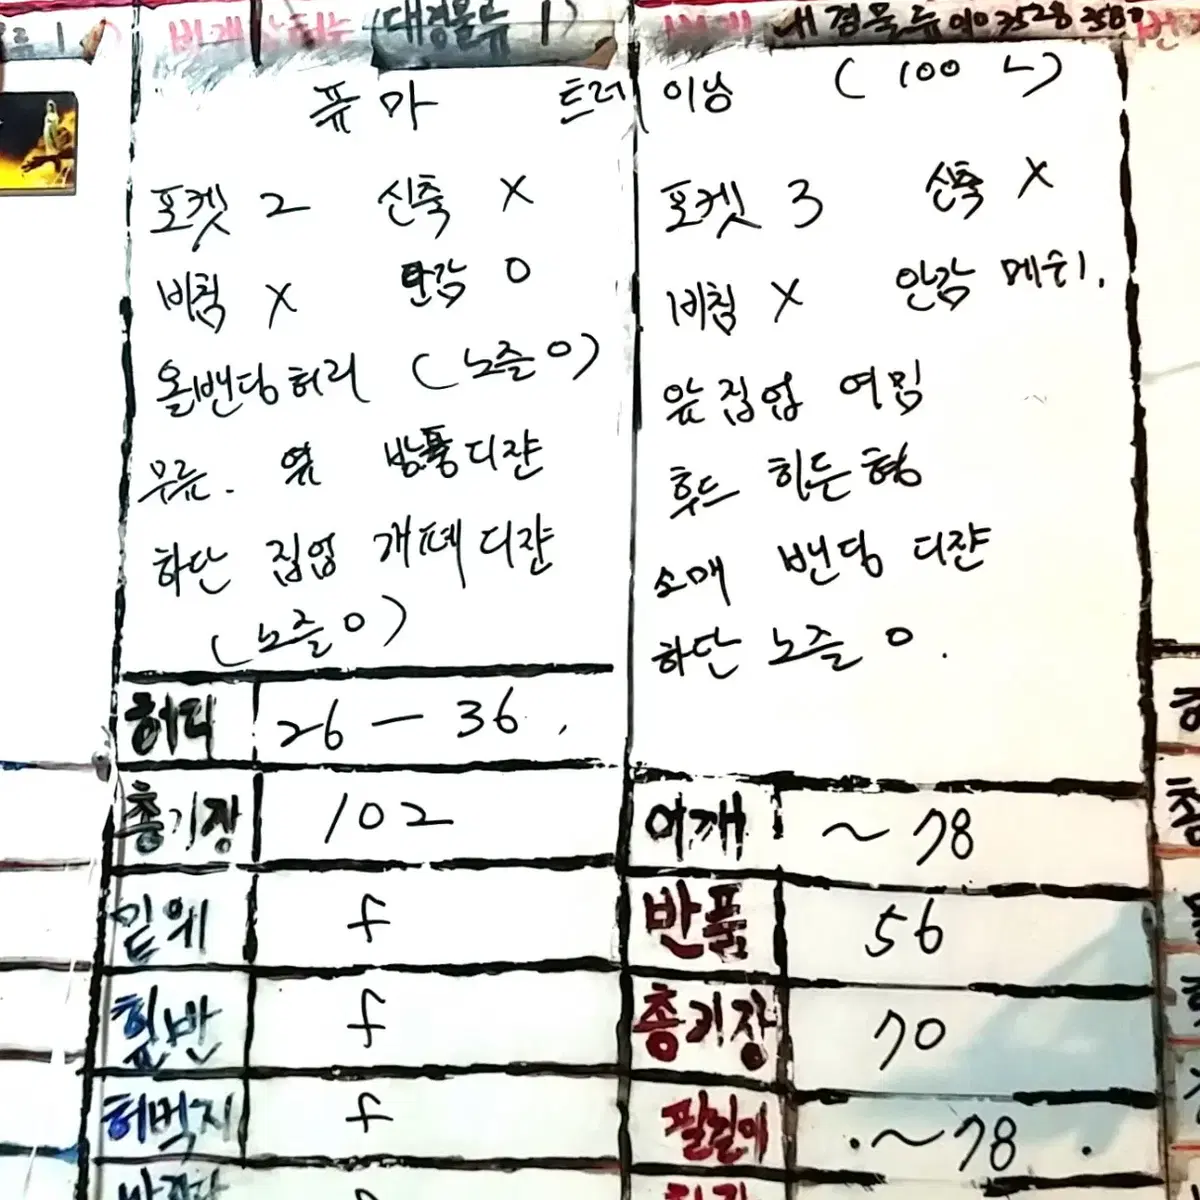 (대경물류 1)
대경물류 010 3528 3587
퓨마 트러이닝 (100 L)
포켓 2 신축 X
비침 X 안감 O
올밴딩허리 (노즐 O)
무류. 옆 방풍디쟌
하단 집업 개폐디쟌
(노즐 O)
허리 26 — 36
총기장 102
밑위 f
힙반 f
허벅지 f
포켓 3 신축 X
비침 X 안감 메쉬.
앞집업 여밈
후드 히든형
소매 밴딩 디쟌
하단 노즐 O.
어깨 ~78
반품 56
총기장 70
팔길이 ~78